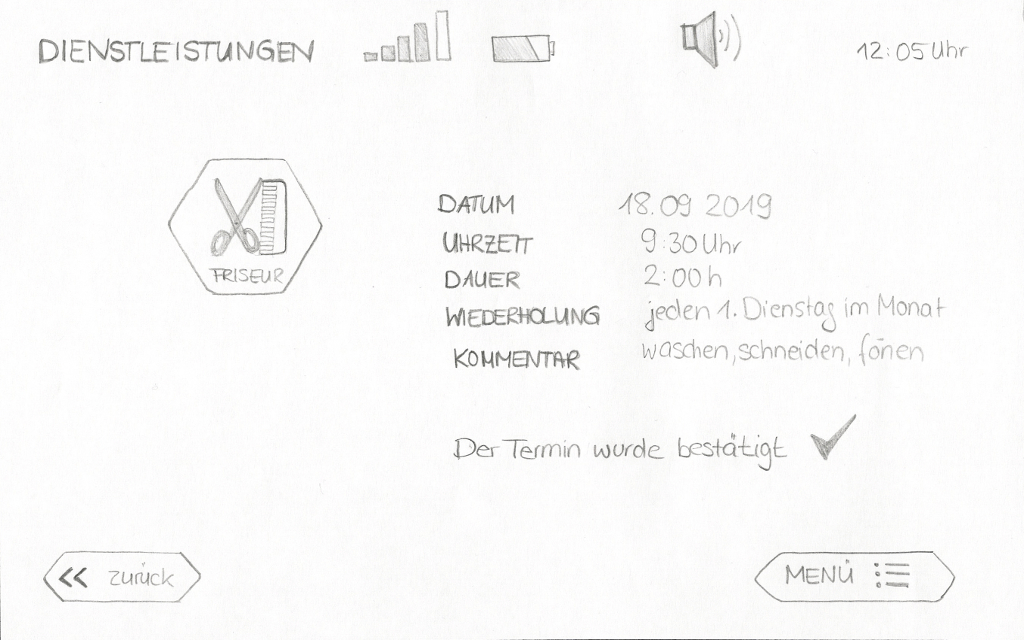 DIENSTLEISTUNGEN
12:05 Uhr
FRISEUR
DATUM 18.09 2019
UHRZEIT 9:30 Uhr
DAUER 2:00 h
WIEDERHOLUNG jeden 1. Dienstag im Monat
KOMMENTAR waschen, schneiden, fönen
Der Termin wurde bestätigt
<< zurück
MENÜ